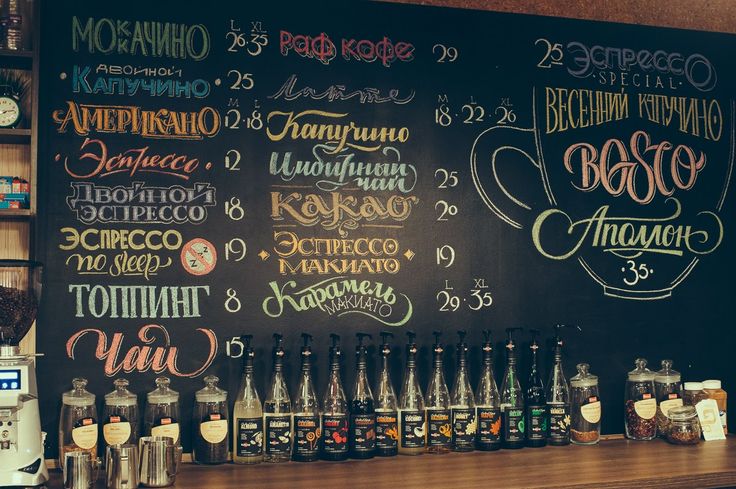 МОККАЧИНО L 26 · XL 35
ДВОЙНОЙ
КАПУЧИНО 25
АМЕРИКАНО M 12 · L 18
Эспрессо 12
ДВОЙНОЙ
ЭСПРЕССО 18
ЭСПРЕССО
no sleep 19
ТОППИНГ 8
Чай 15
РАФ КОФЕ 29
Латте
Капучино M 18 · L 22 · XL 26
Имбирный
чай 25
КАКАО 20
ЭСПРЕССО
МАКИАТО 19
Карамель
МАКИАТО L 29 · XL 35
25 ЭСПРЕССО
SPECIAL
ВЕСЕННИЙ КАПУЧИНО
BOSCO
Аполлон
· 35 ·